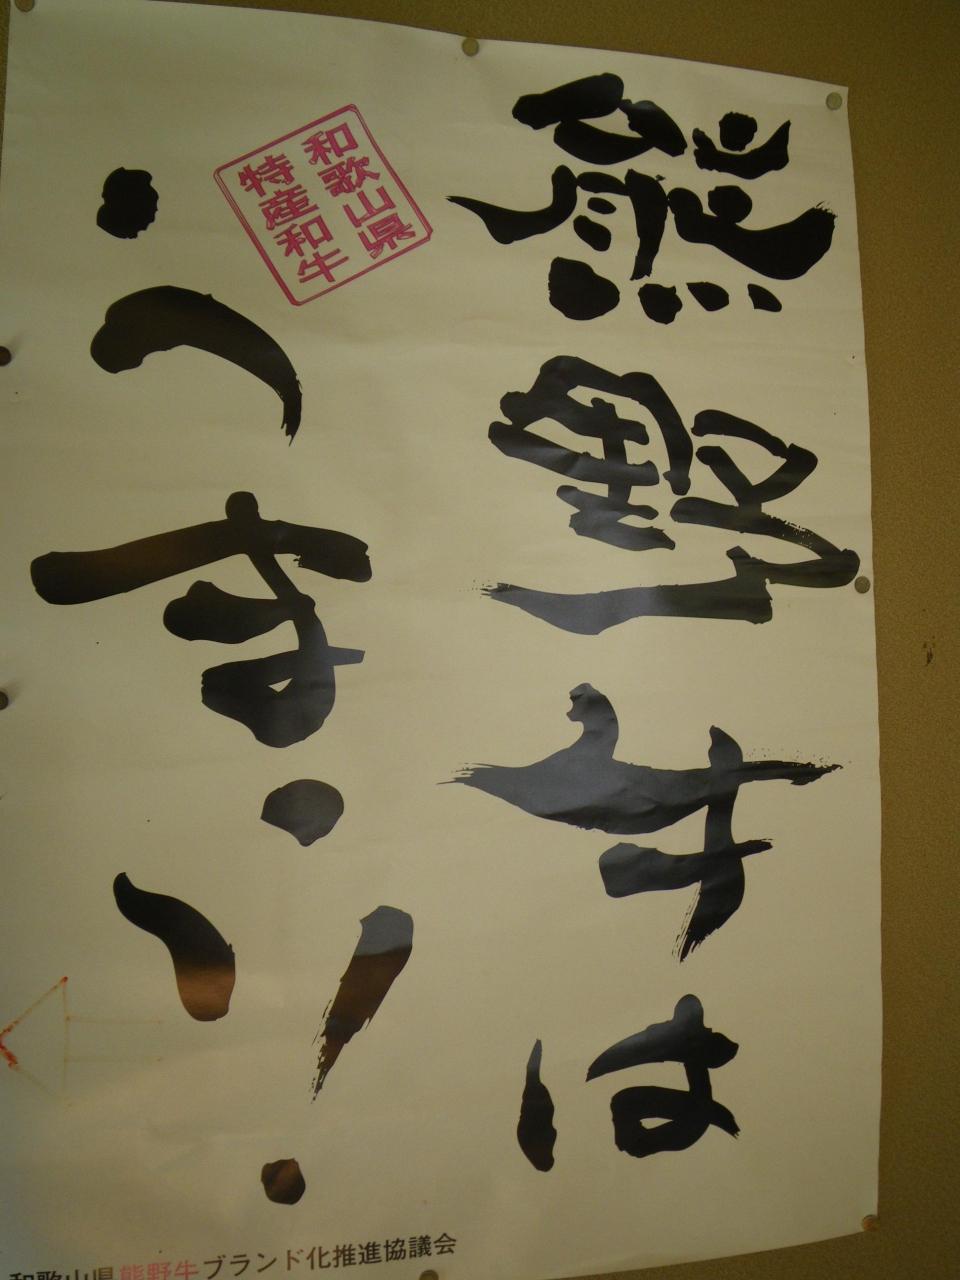 熊野牛は
うまい!
和歌山県
特産和牛
和歌山県熊野牛ブランド化推進協議会